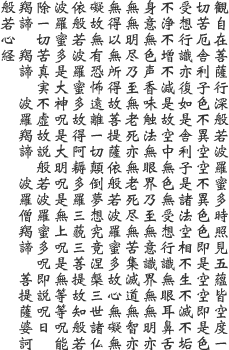 觀自在菩薩行深般若波羅蜜多時照見五蘊皆空度一
切苦厄舍利子色不異空空不異色色即是空空即是色
受想行識亦復如是舍利子是諸法空相不生不滅不垢
不淨不增不減是故空中無色無受想行識無眼耳鼻舌
身意無色声香味触法無眼界乃至無意識界無無明亦
無無明尽乃至無老死亦無老死尽無苦集滅道無智亦
無得以無所得故菩提薩依般若波羅蜜多故心無礙無
礙故無有恐怖遠離一切顛倒夢想究竟涅槃三世諸仏
依般若波羅蜜多故得阿耨多羅三藐三菩提故知般若
波羅蜜多是大神呪是大明呪是無上呪是無等等呪能
除一切苦真実不虚故説般若波羅蜜多呪即説呪曰
羯諦　羯諦　波羅羯諦　波羅僧羯諦　菩提薩婆訶
般若心経